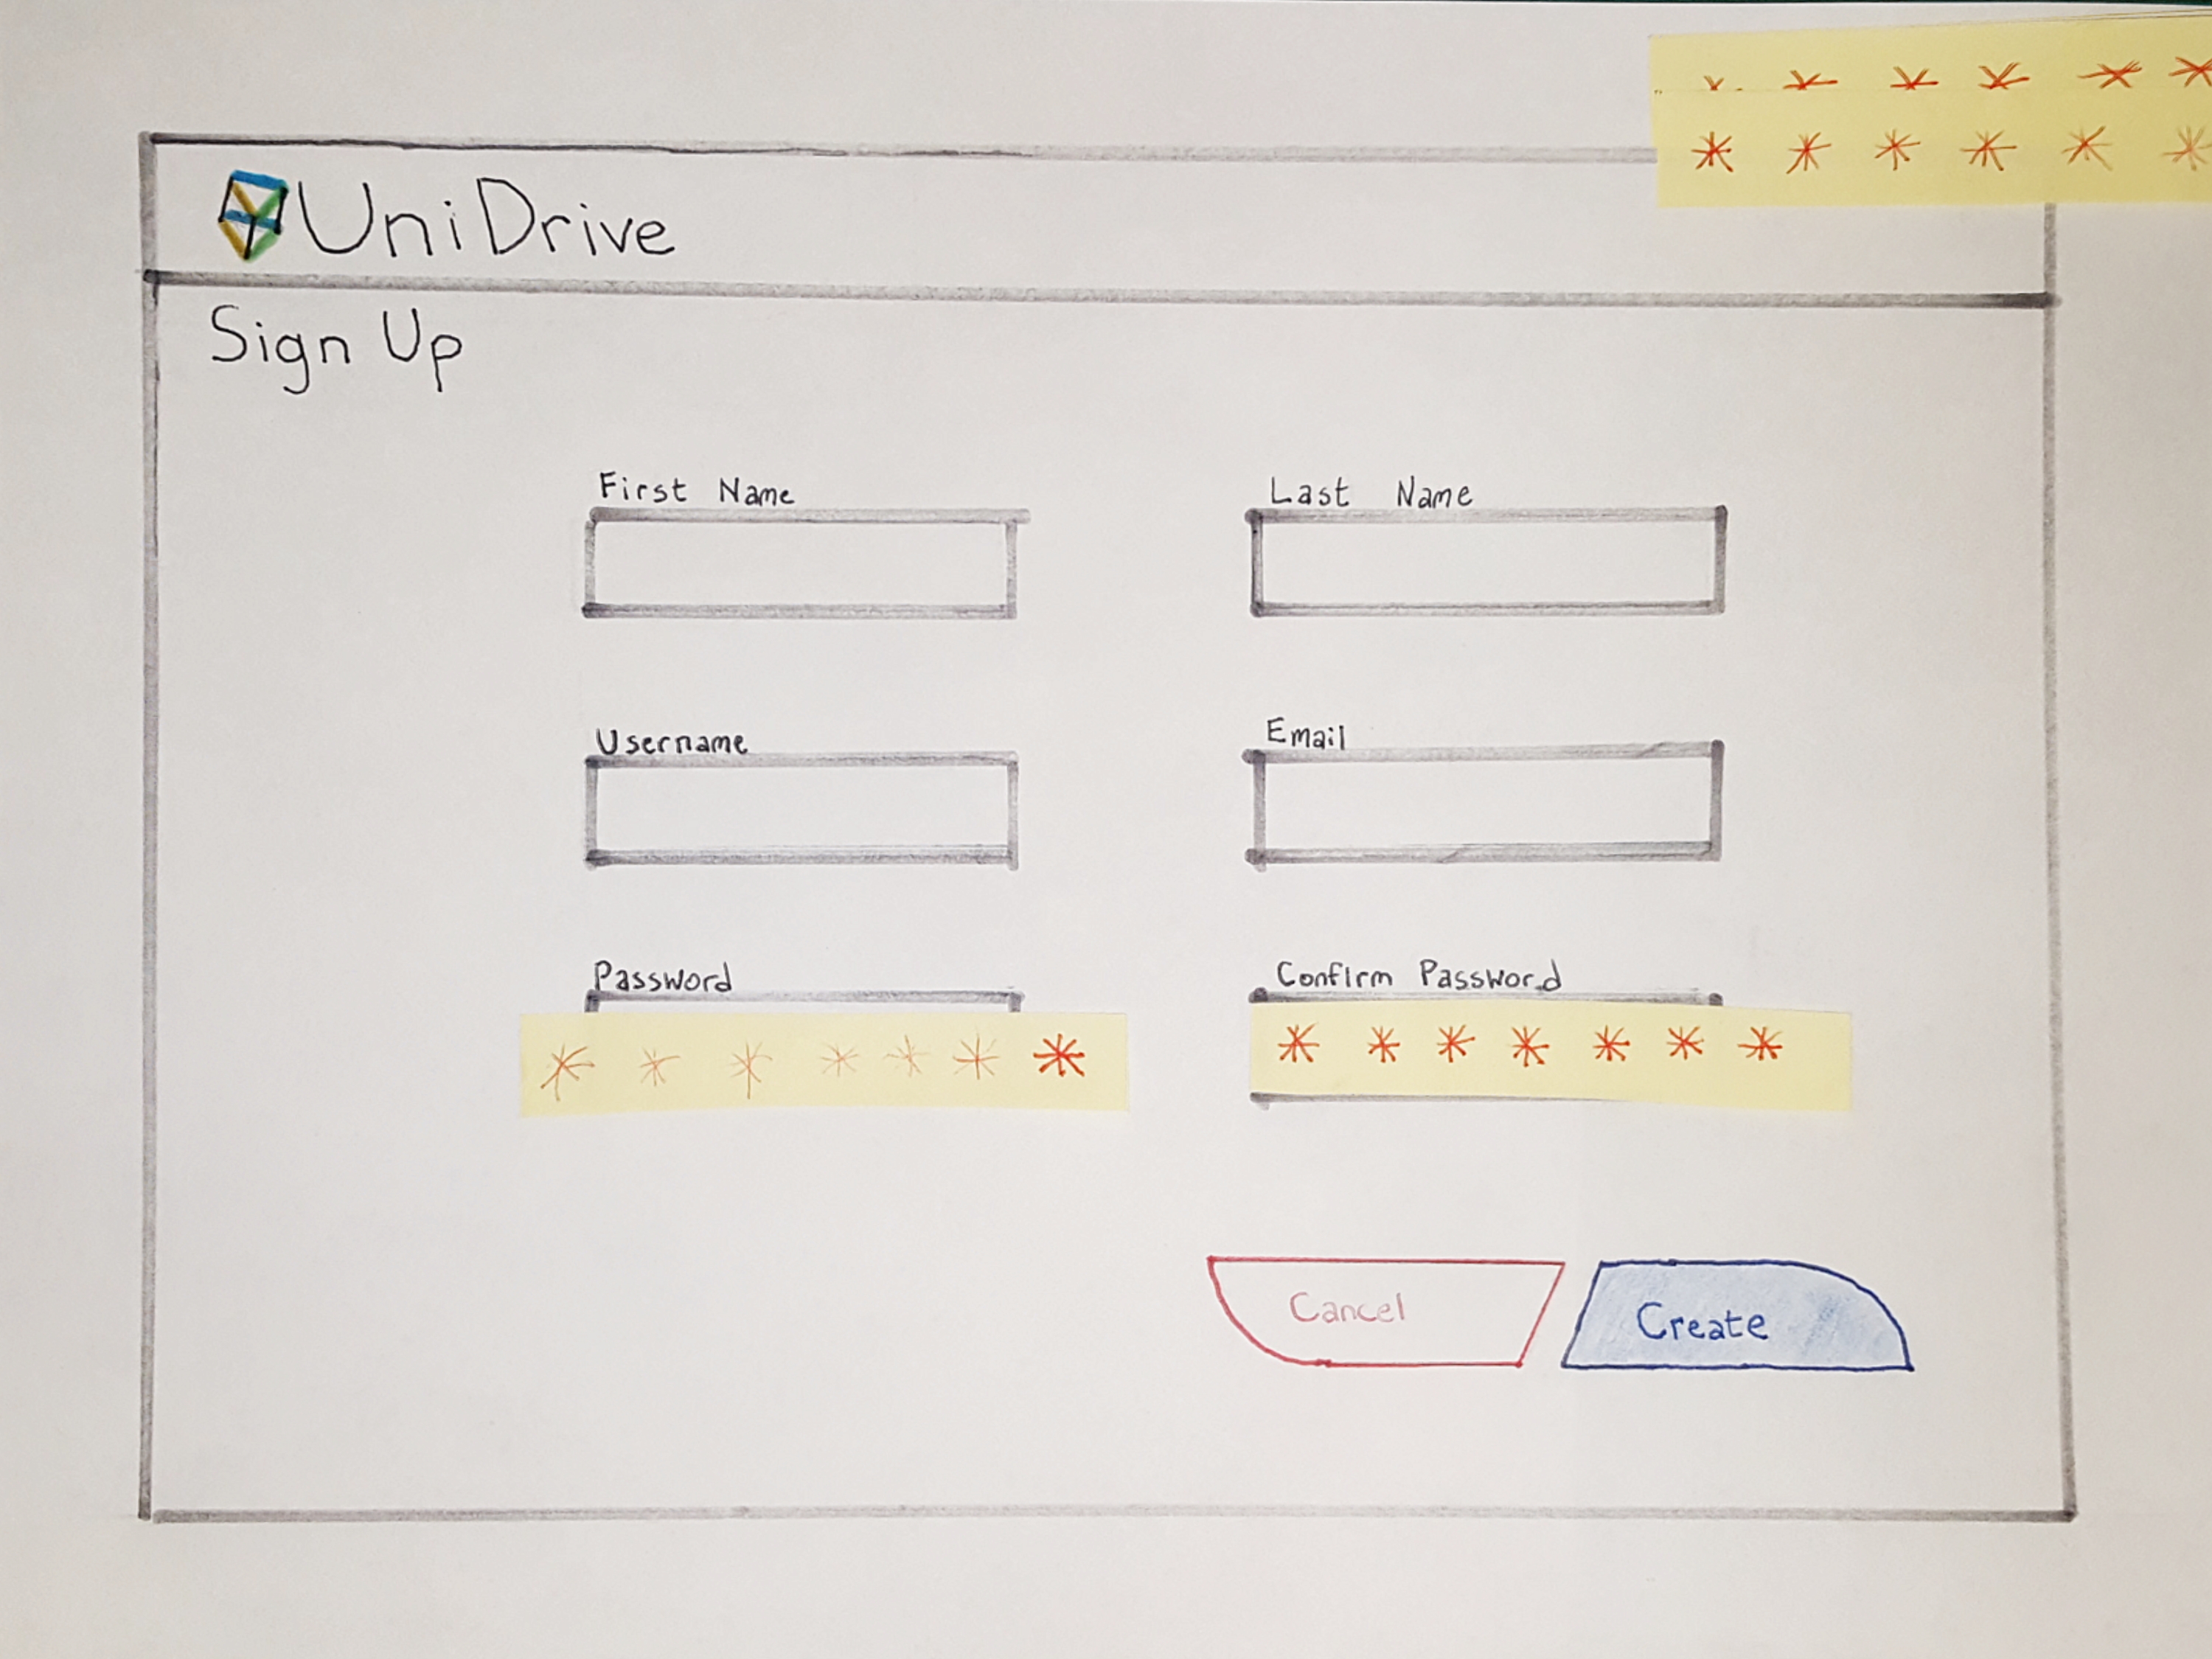 * * * * * *
* * * * * *
UniDrive
Sign Up
First Name
Last Name
Username
Email
Password
Confirm Password
* * * * * * *
* * * * * * *
Cancel
Create